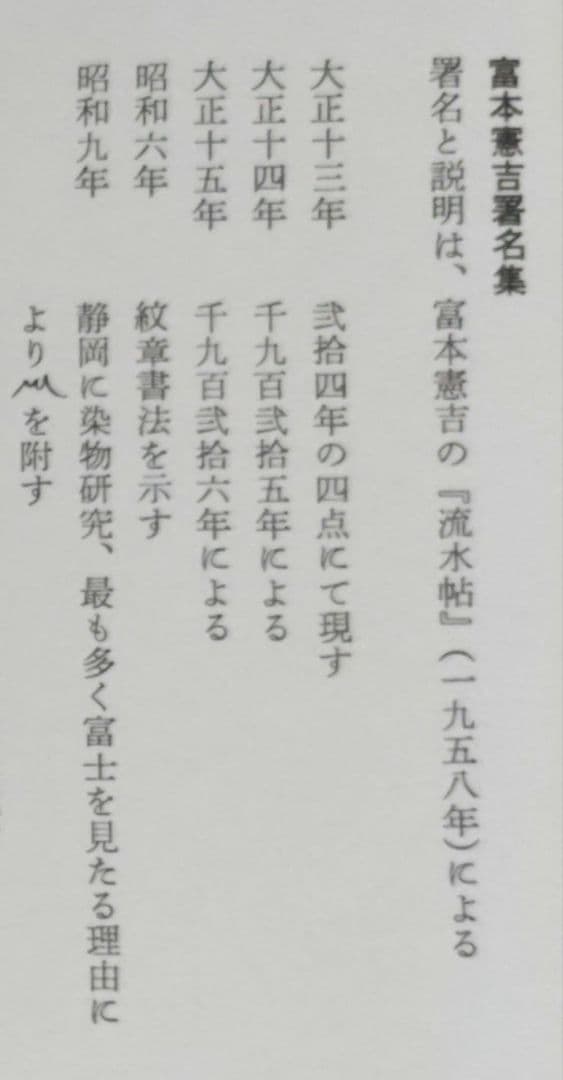 富本憲吉署名集
署名と説明は、富本憲吉の『流水帖』(一九五八年)による
大正十三年　弐拾四年の四点にて現す
大正十四年　千九百弐拾五年による
大正十五年　千九百弐拾六年による
昭和六年　紋章書法を示す
昭和九年　静岡に染物研究、最も多く富士を見たる理由に
より を附す